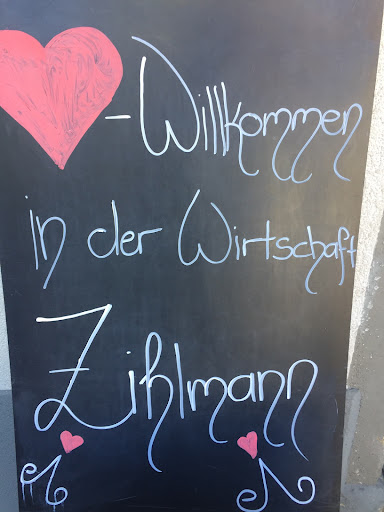 -Willkommen
in der Wirtschaft
Zihlmann